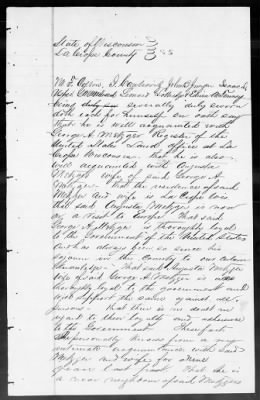 State of Wisconsin
La Crosse County } SS
being severally duly sworn
doth each for himself on oath say
that he is well acquainted with
George A. Metzger Register of the
United States Land office at La
Crosse Wisconsin. that he is also
well acquainted with Augusta
Metzger wife of said George A.
Metzger. That the residence of said
Metzger and wife is La Crosse Wis
that said Augusta Metzger is now
on a visit to Europe. That said
George A. Metzger is thoroughly loyal
to the Government of the United States
and has always been so since his
sojourn in this County to our certain
Knowledge. That said Augusta Metzger
wife of said George A. Metzger is also
thoroughly loyal to the government and
will support the same against all
persons. that there is no doubt in
regard to their loyalty and adherence
to the Government.
personally knows from a very
intimate acquaintance with said
Metzger and wife for
years last past. that he is
a near neighbor of said Metzgers